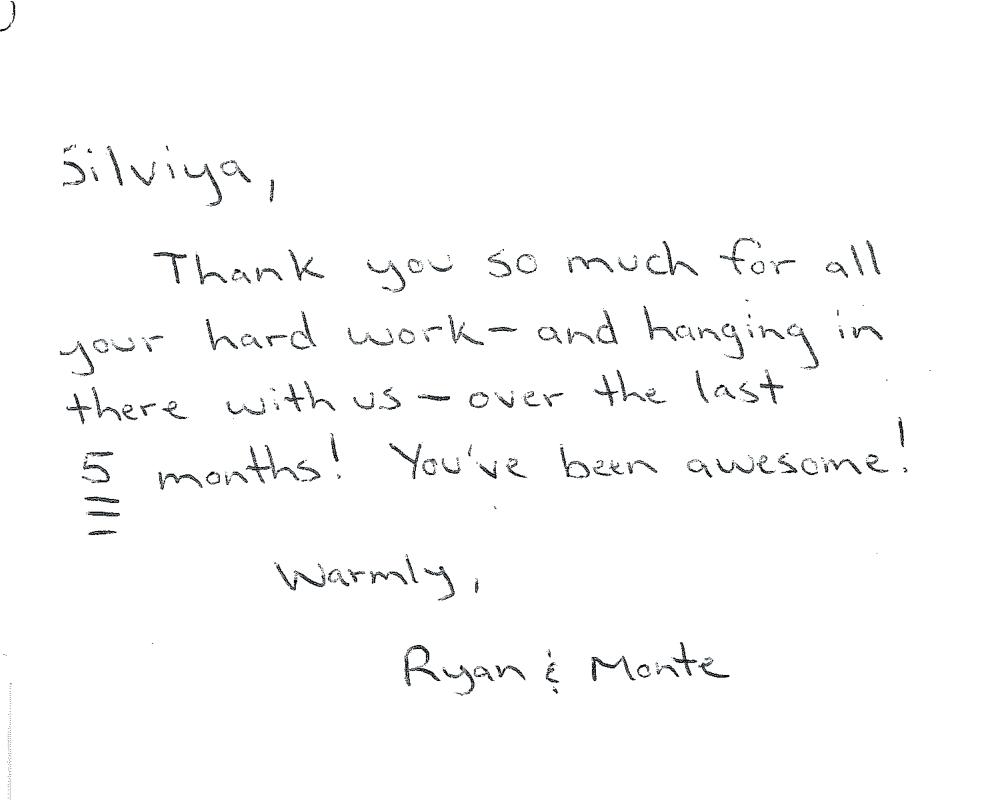 Silviya,
Thank you so much for all
your hard work - and hanging in
there with us - over the last
5 months! You've been awesome!
Warmly,
Ryan & Monte